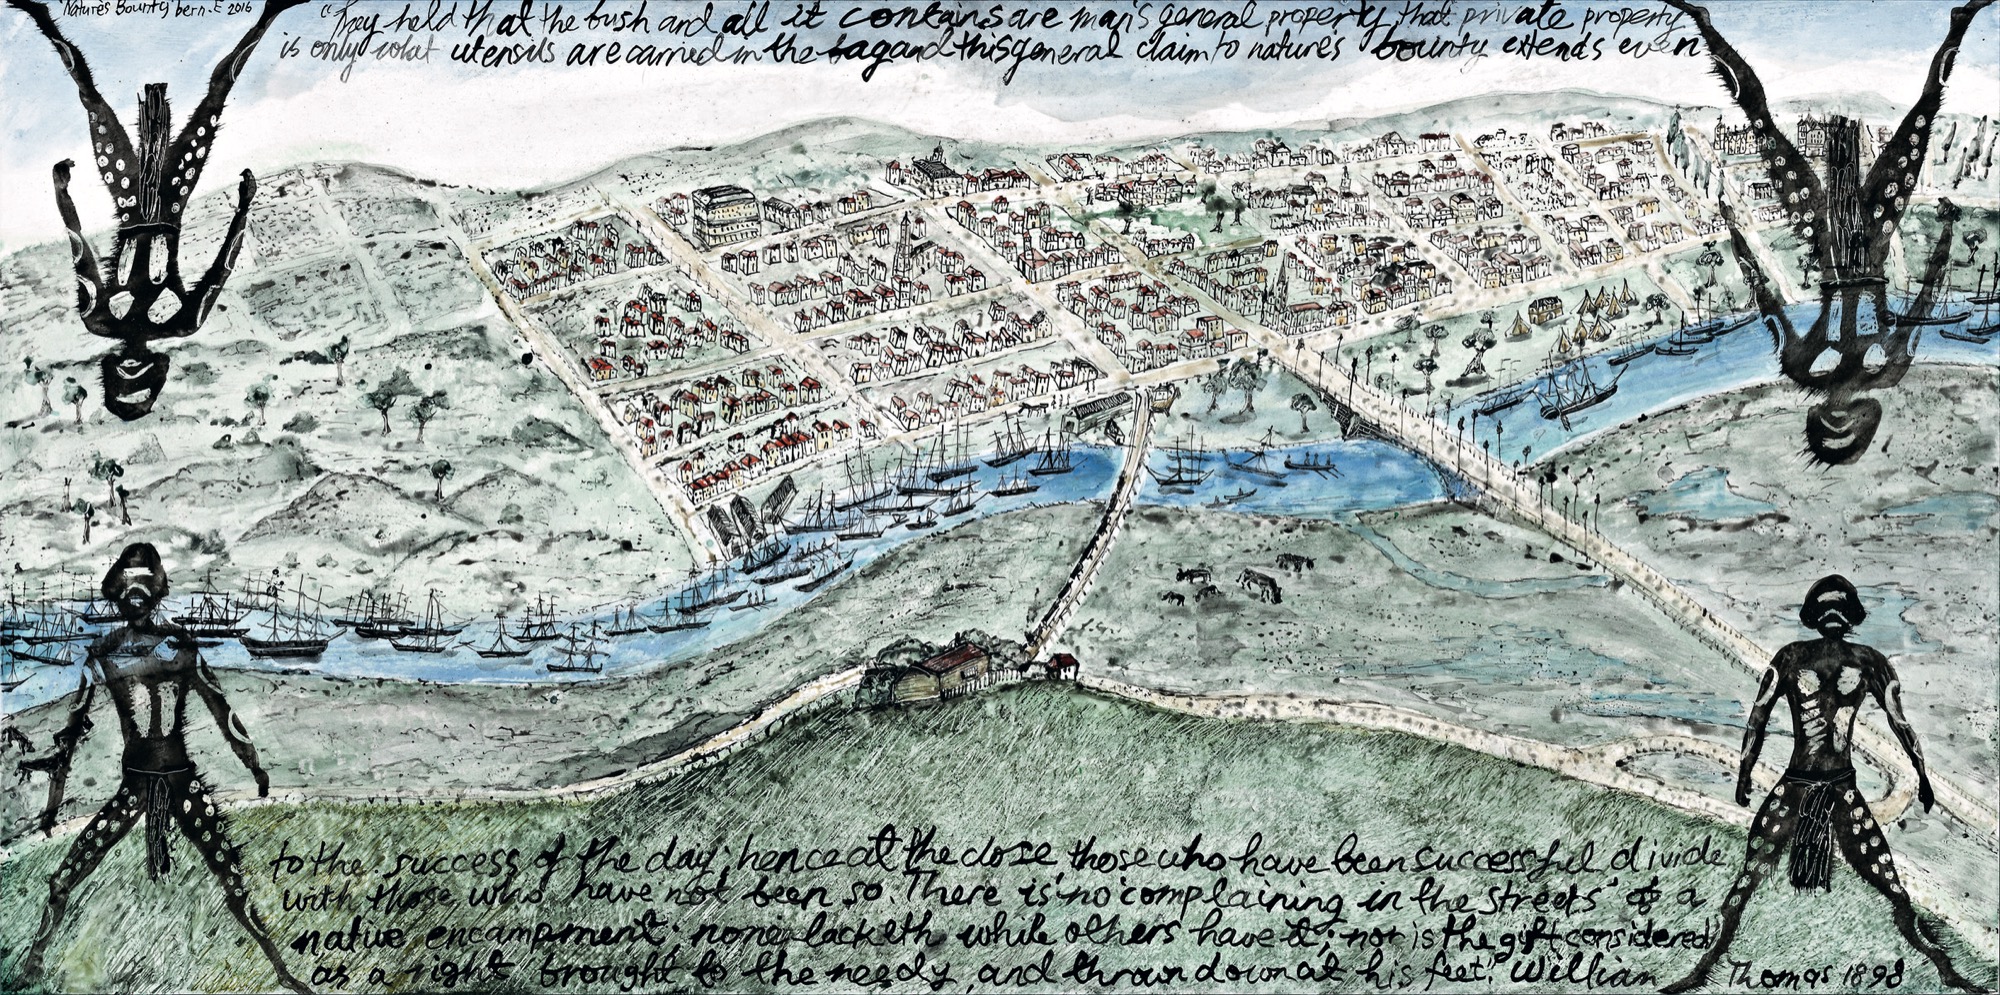 Natures Bounty bern.E 2016
"They held that the bush and all it contains are man's general property, that private property
is only what utensils are carried in the bag and this general claim to nature's bounty extends even
to the success of the day; hence at the close, those who have been successful divide
with those who have not been so. There is 'no complaining in the streets' of a
native encampment; none lacketh while others have it; nor is the gift considered
as a right brought to the needy, and thrown down at his feet." William Thomas 1898